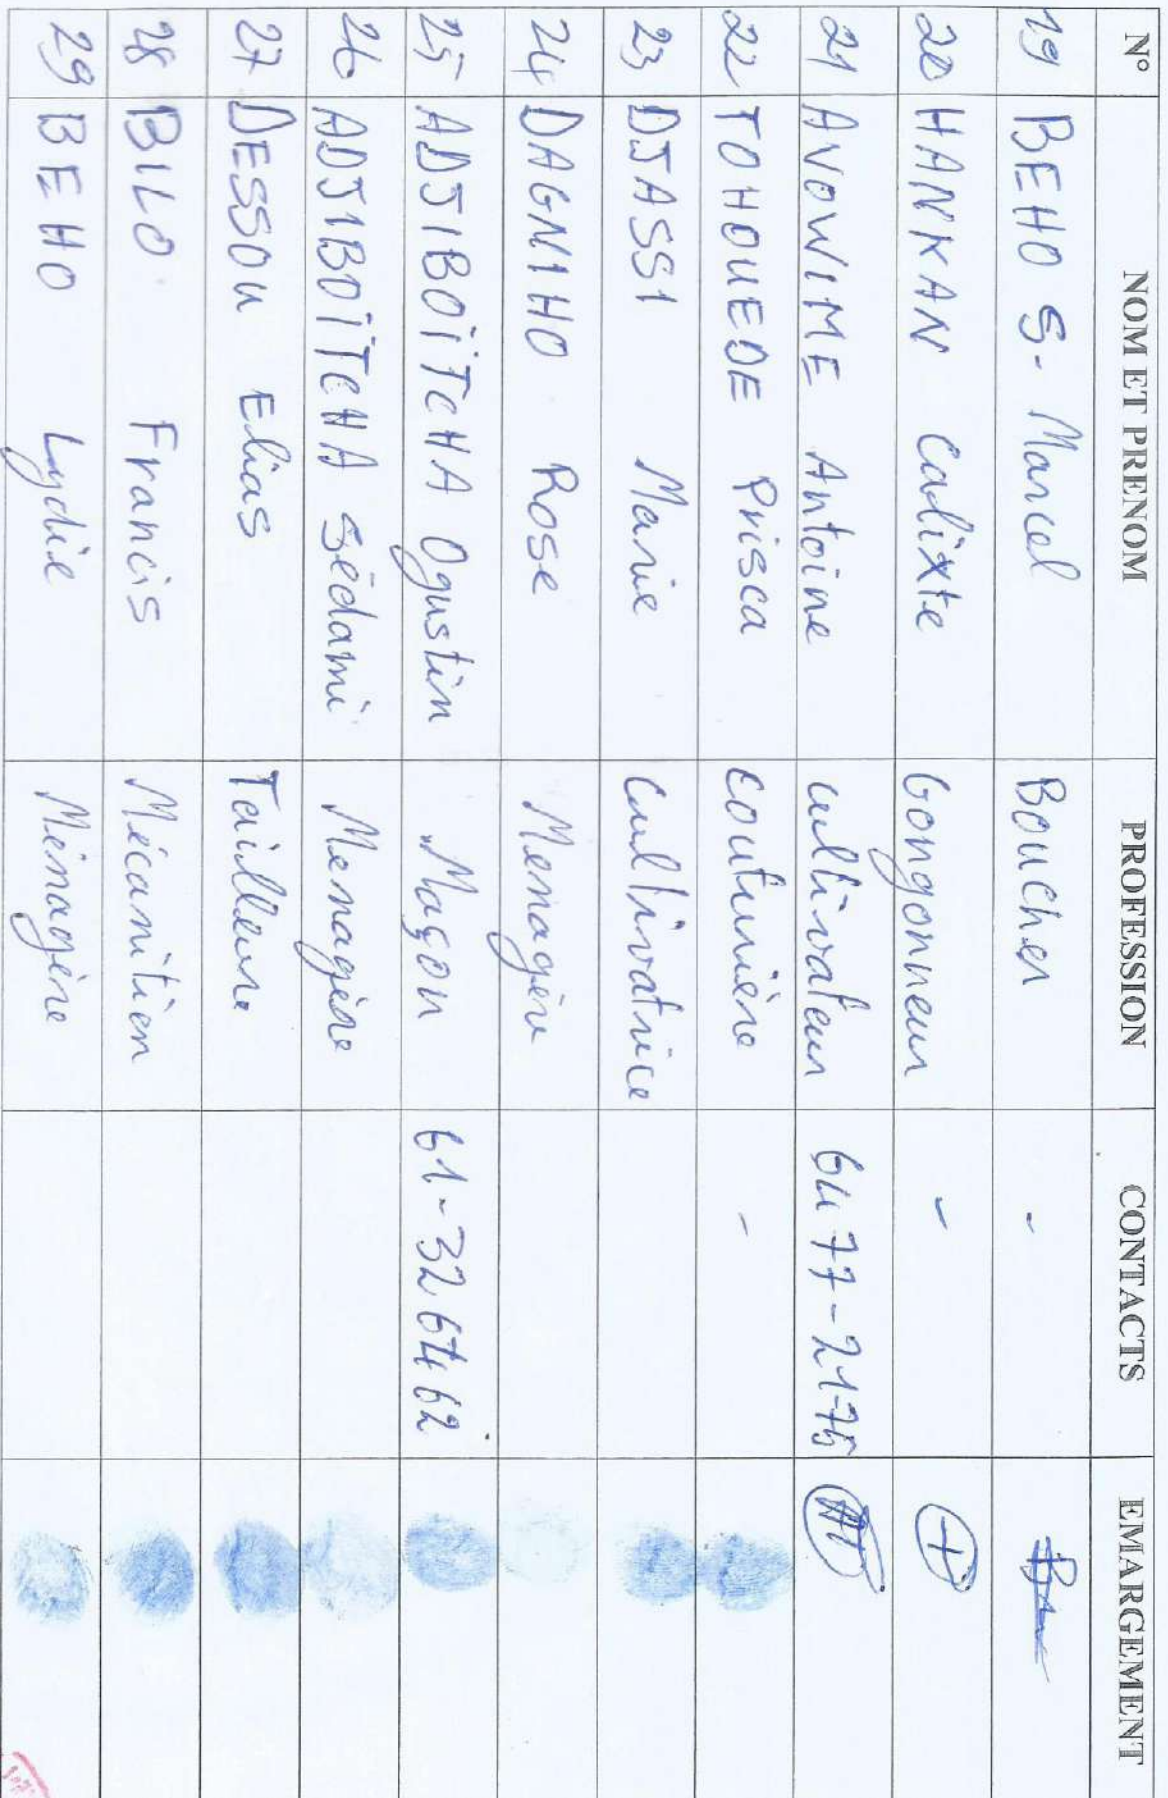 N° NOM ET PRENOM PROFESSION CONTACTS EMARGEMENT
19 BEHO S- Marcel Boucher -
20 HANKAN Calixte Gongonneur -
21 AVOWIME Antoine cultivateur 64 77-21-75
22 TOHOUEDE Prisca Couturière -
23 DJASSI Marie Cultivatrice
24 DAGNIHO Rose Menagère
25 ADJIBOÏTCHA Ogustin Maçon 61-32 64 62
26 ADJIBOÏTCHA Sèdami Menagère
27 DESSOU Elias Tailleure
28 BILO Francis Mécanitien
29 BEHO Lydie Ménagère